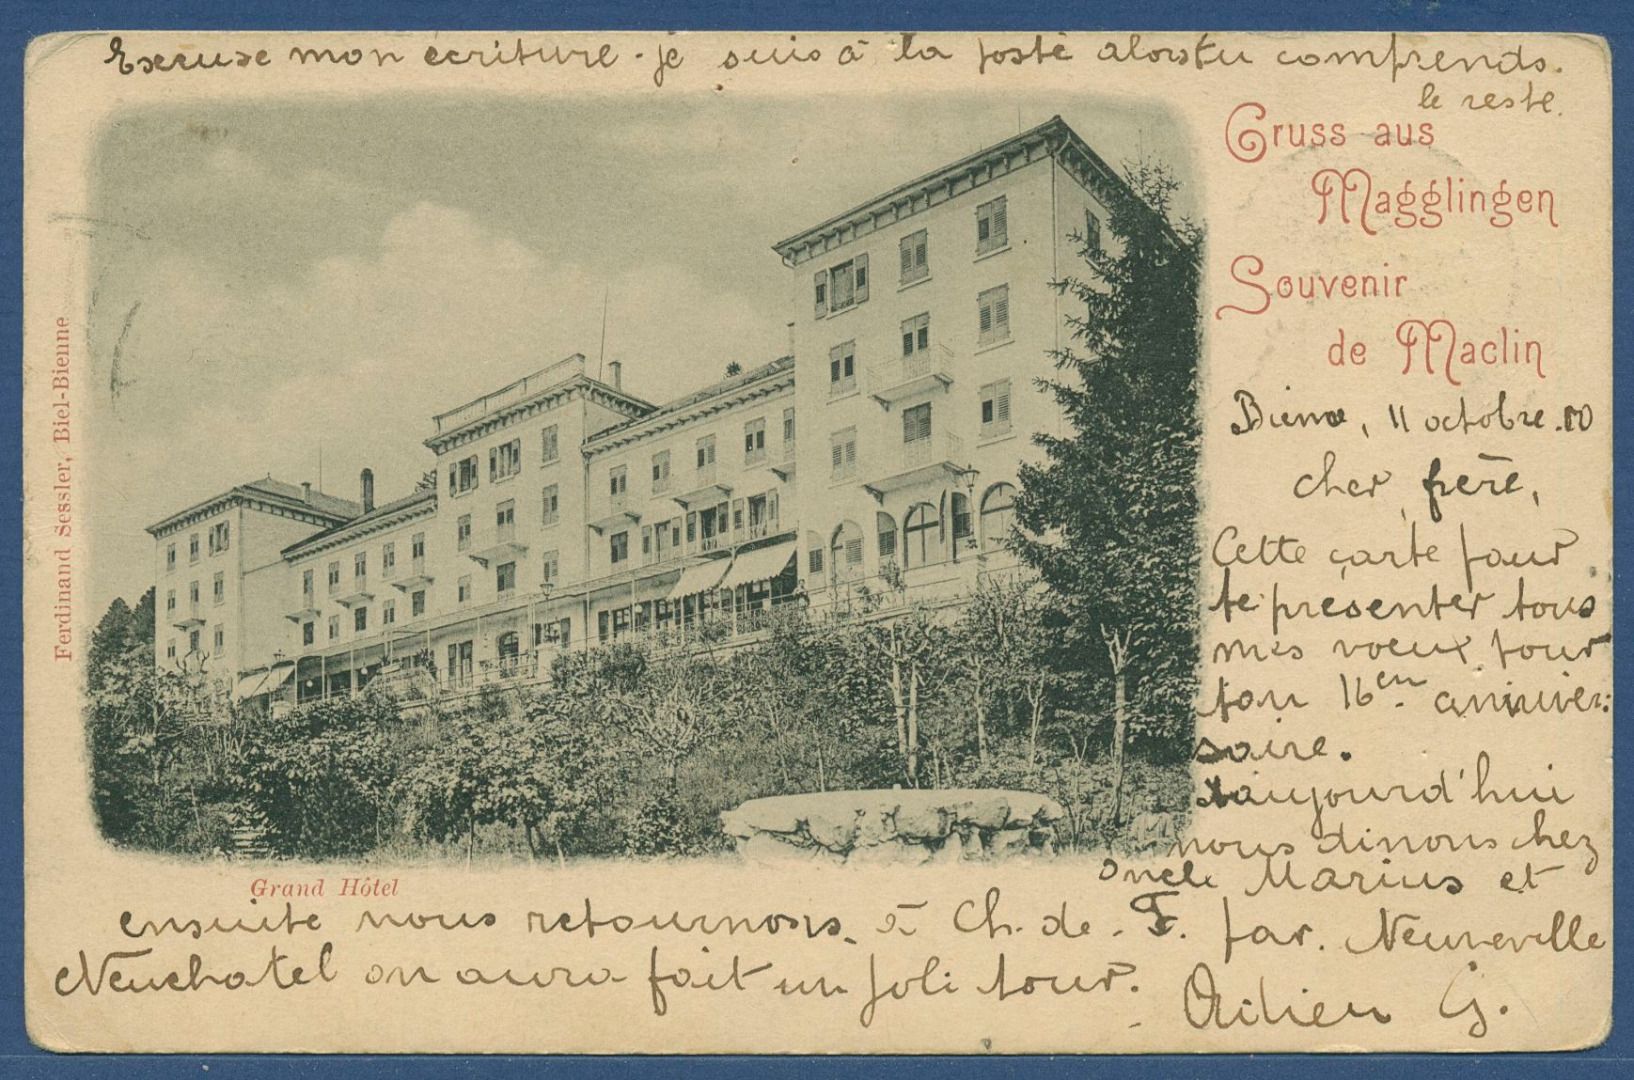 Excuse mon écriture. je suis à la poste alors tu comprends.
le reste.
Gruss aus
Magglingen
Souvenir
de Maclin
Bienne, 11 octobre. 00
cher frère,
Cette carte pour
te presenter tous
mes voeux pour
ton 16en anniver:
saire.
aujourd'hui
nous dinons chez
oncle Marius et
Grand Hôtel
ensuite nous retournons à Ch. de. F. par. Neuveville
Neuchatel on aura fait un joli tour.
Adieu G.
Ferdinand Sessler, Biel-Bienne